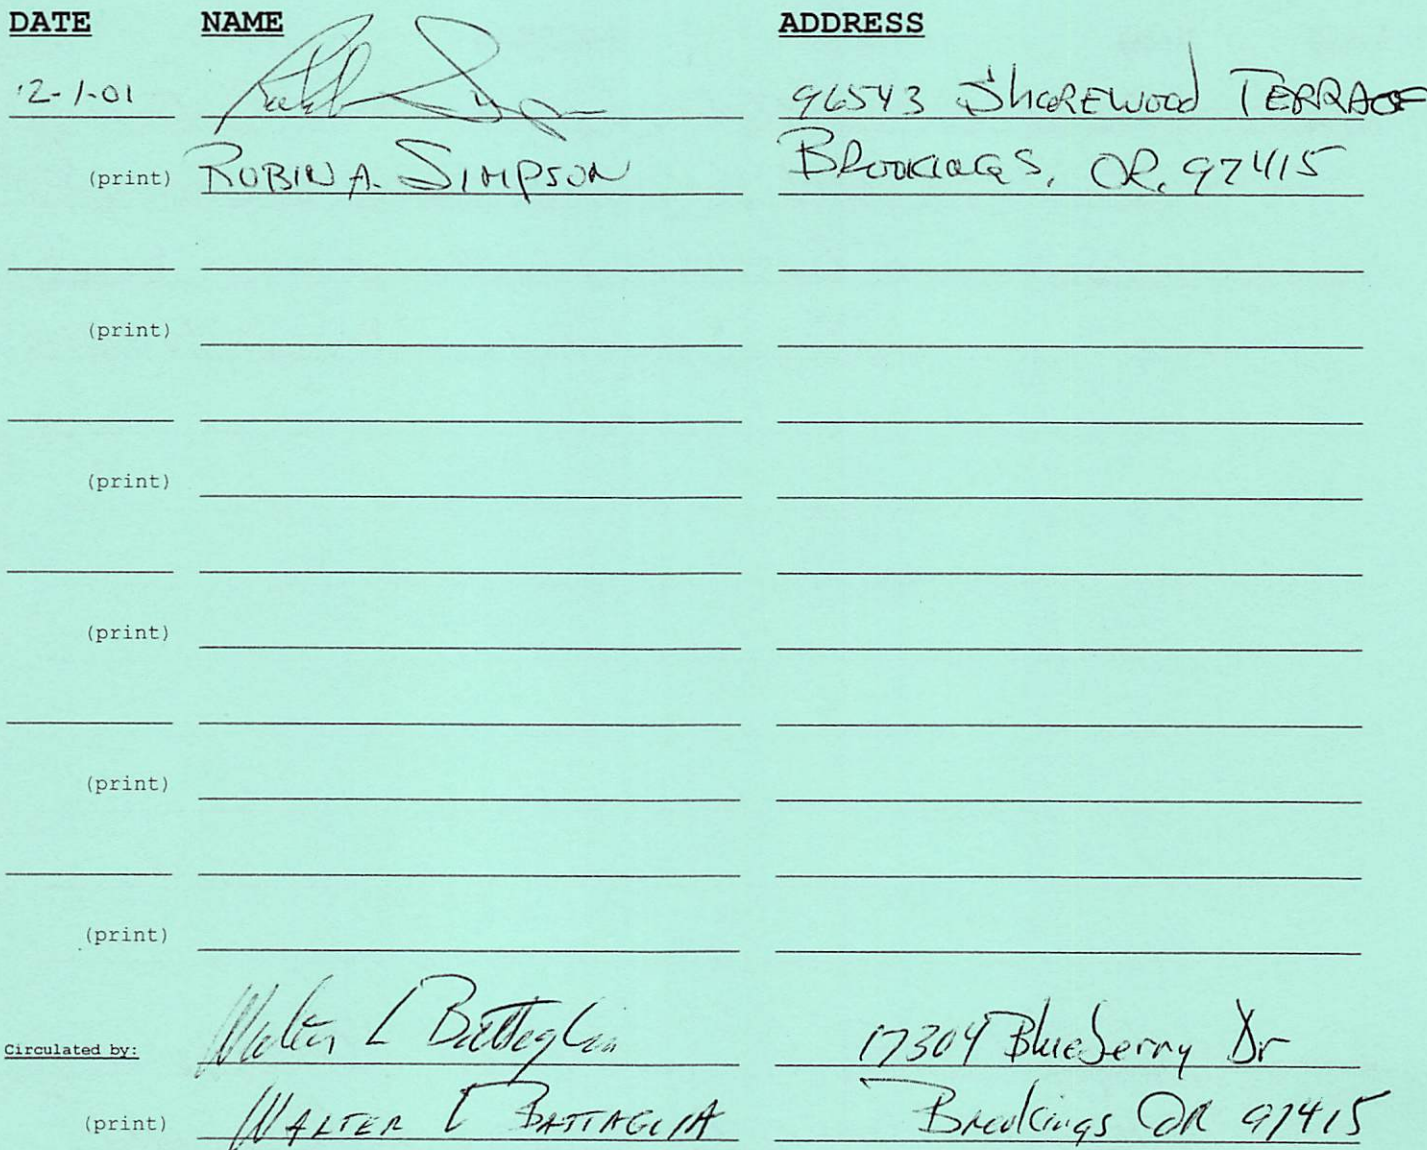 DATE NAME ADDRESS
12-1-01 96543 Shorewood Terrace
(print) Robin A. Simpson Brookings, OR. 97415
(print)
(print)
(print)
(print)
(print)
Circulated by: Walter L Battaglia 17304 Blueberry Dr
(print) Walter L Battaglia Brookings OR 97415